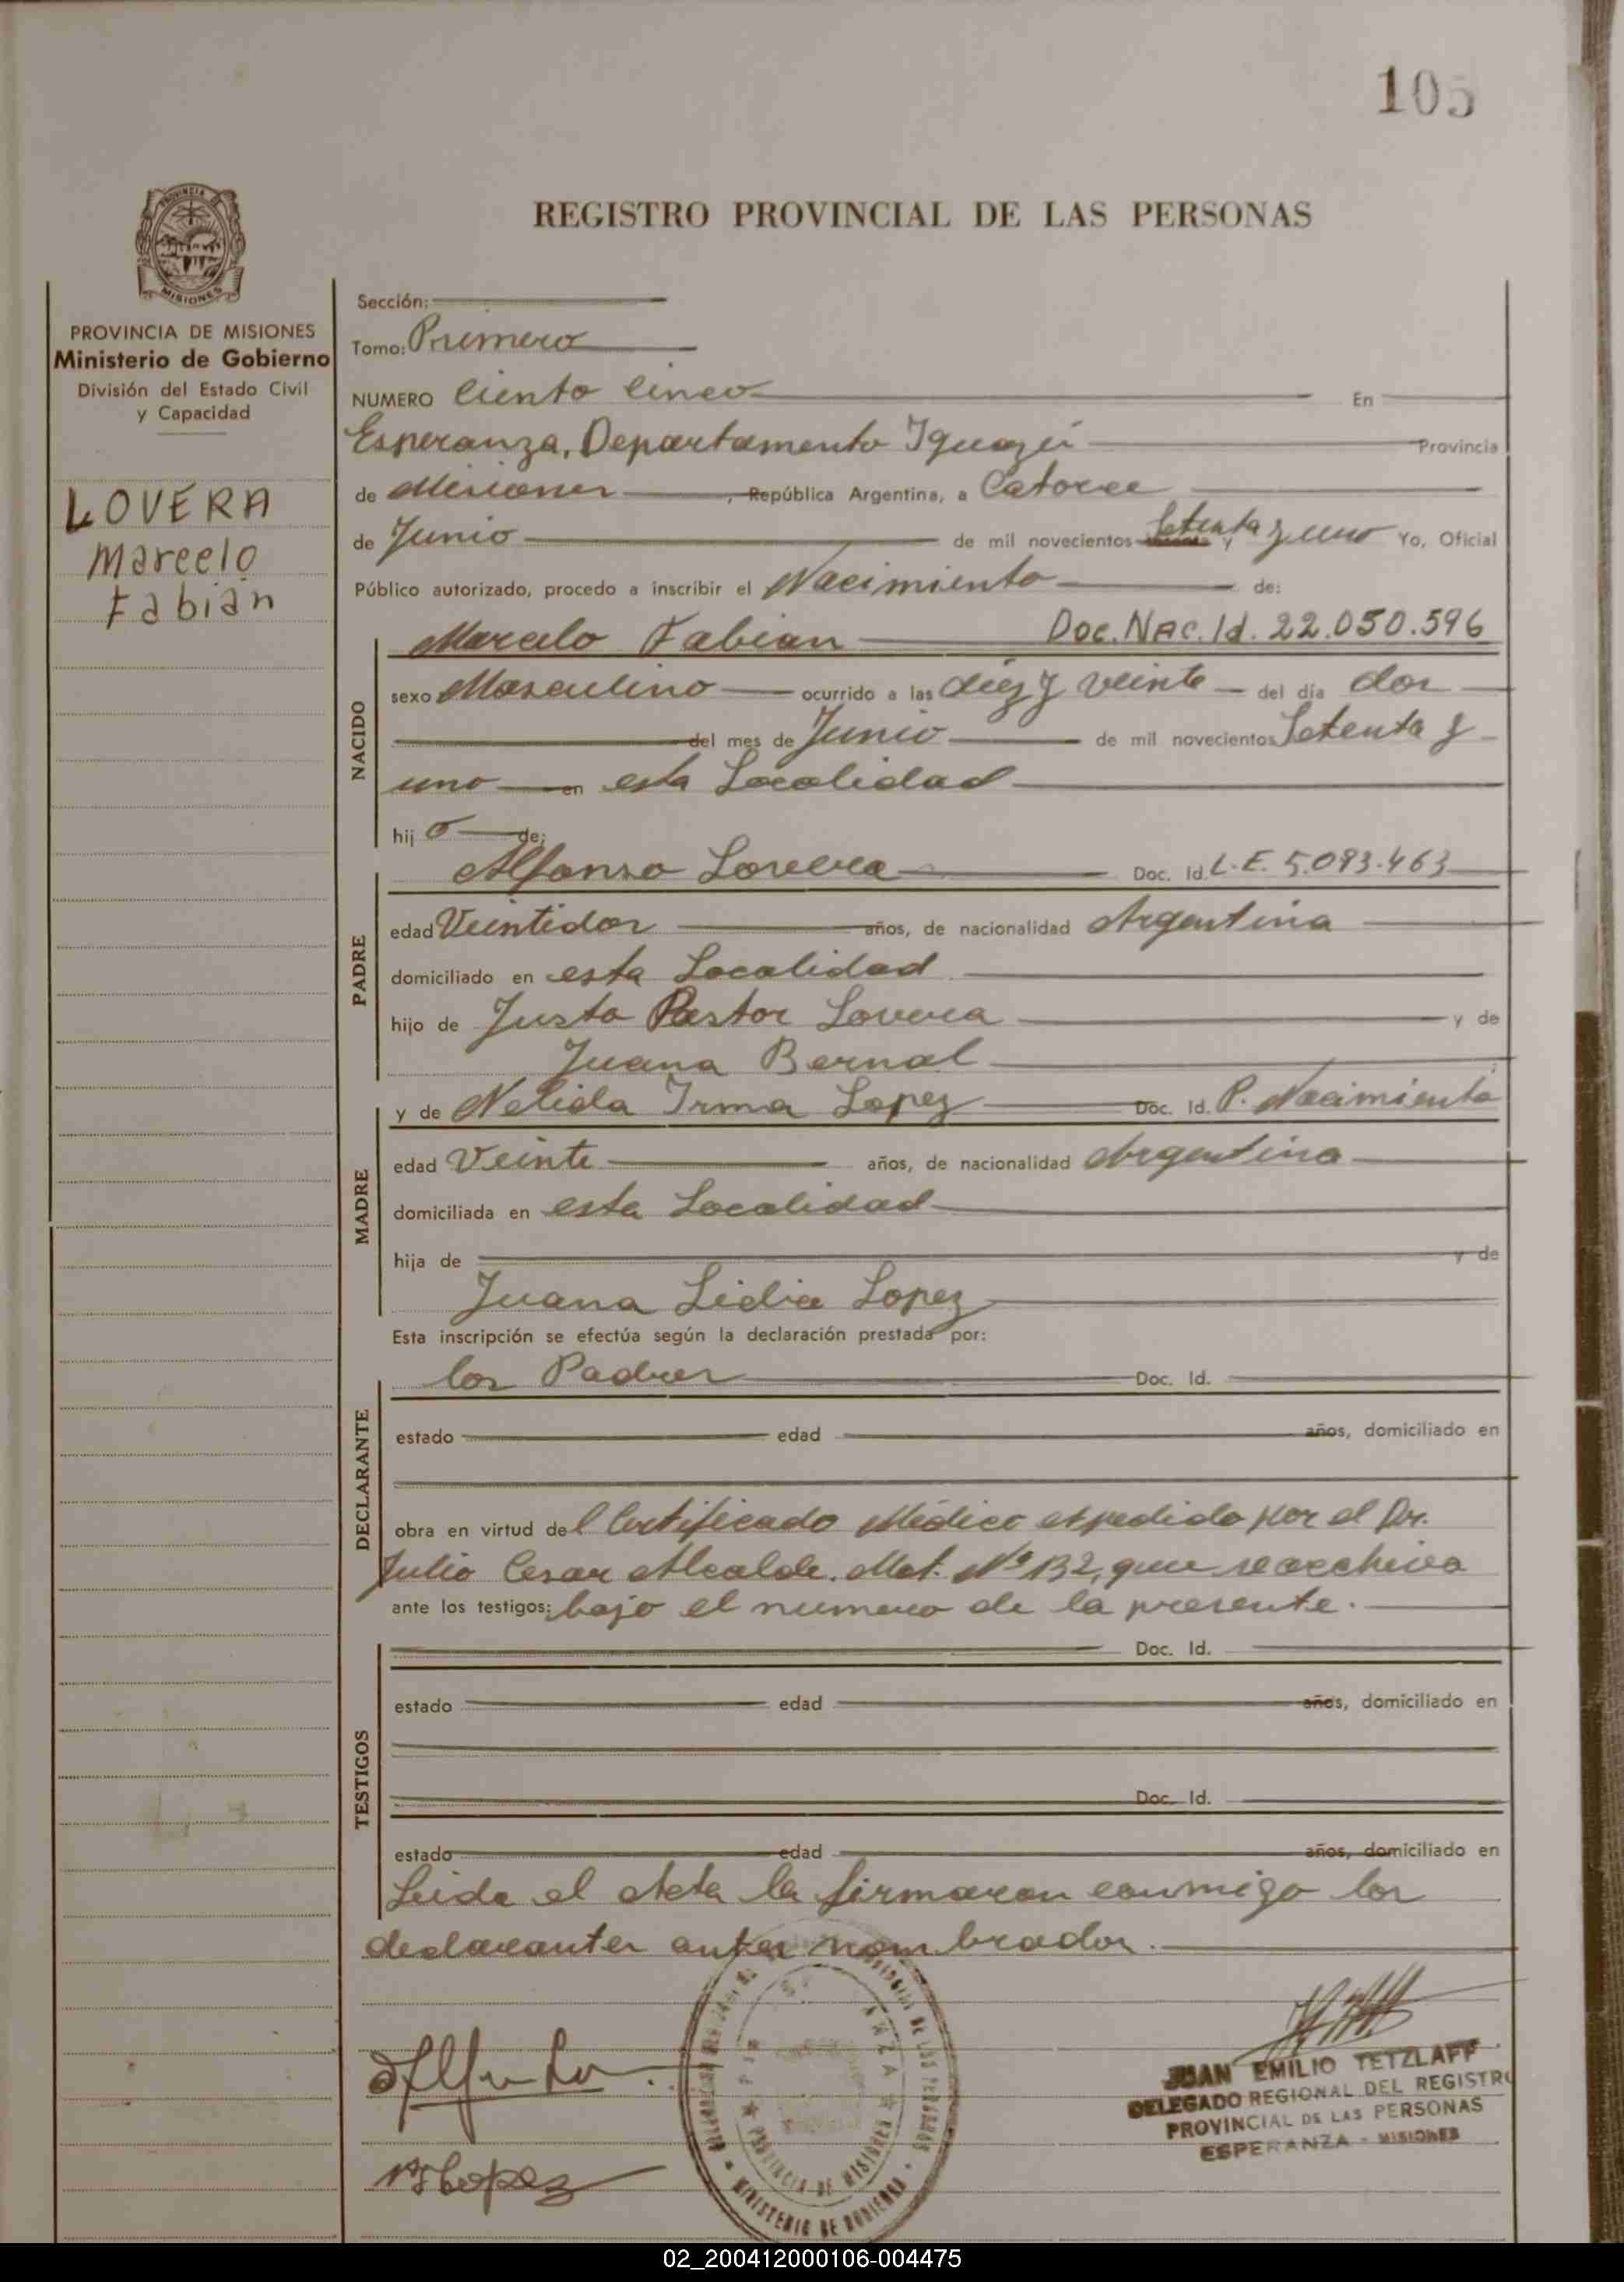 105
REGISTRO PROVINCIAL DE LAS PERSONAS
PROVINCIA DE MISIONES
Ministerio de Gobierno
División del Estado Civil
y Capacidad
LOVERA
Marcelo
Fabián
Sección:
Tomo: Primero
NUMERO Ciento Cinco En
Esperanza, Departamento Iguazú Provincia
de Misiones, República Argentina, a Catorce
de Junio de mil novecientos Setenta y uno Yo, Oficial
Público autorizado, procedo a inscribir el Nacimiento de:
NACIDO
Marcelo Fabian Doc. Nac. Id. 22.050.596
sexo Masculino ocurrido a las diez y veinte del día dos
del mes de Junio de mil novecientos Setenta y
uno en esta Localidad
hij o de:
PADRE
Alfonso Lovera Doc. Id. L.E. 5.093.463
edad Veintidos años, de nacionalidad Argentina
domiciliado en esta Localidad
hijo de Justo Pastor Lovera y de
Juana Bernal
MADRE
y de Nelida Irma Lopez Doc. Id. P. Nacimiento
edad Veinte años, de nacionalidad Argentina
domiciliada en esta Localidad
hija de y de
Juana Lidia Lopez
Esta inscripción se efectúa según la declaración prestada por:
DECLARANTE
los Padres Doc. Id.
estado edad años, domiciliado en
obra en virtud del Certificado Médico expedido por el Dr.
Julio Cesar Alcalde. Mat. Nº 132, que se archiva
ante los testigos: bajo el numero de la presente.
TESTIGOS
Doc. Id.
estado edad años, domiciliado en
Doc. Id.
estado edad años, domiciliado en
Leida el Acta la firmaron conmigo los
declarantes antes nombrados.
JUAN EMILIO TETZLAFF
DELEGADO REGIONAL DEL REGISTRO
PROVINCIAL DE LAS PERSONAS
ESPERANZA - MISIONES
PROVINCIA DE MISIONES
MINISTERIO DE GOBIERNO
NILopez
02_200412000106-004475